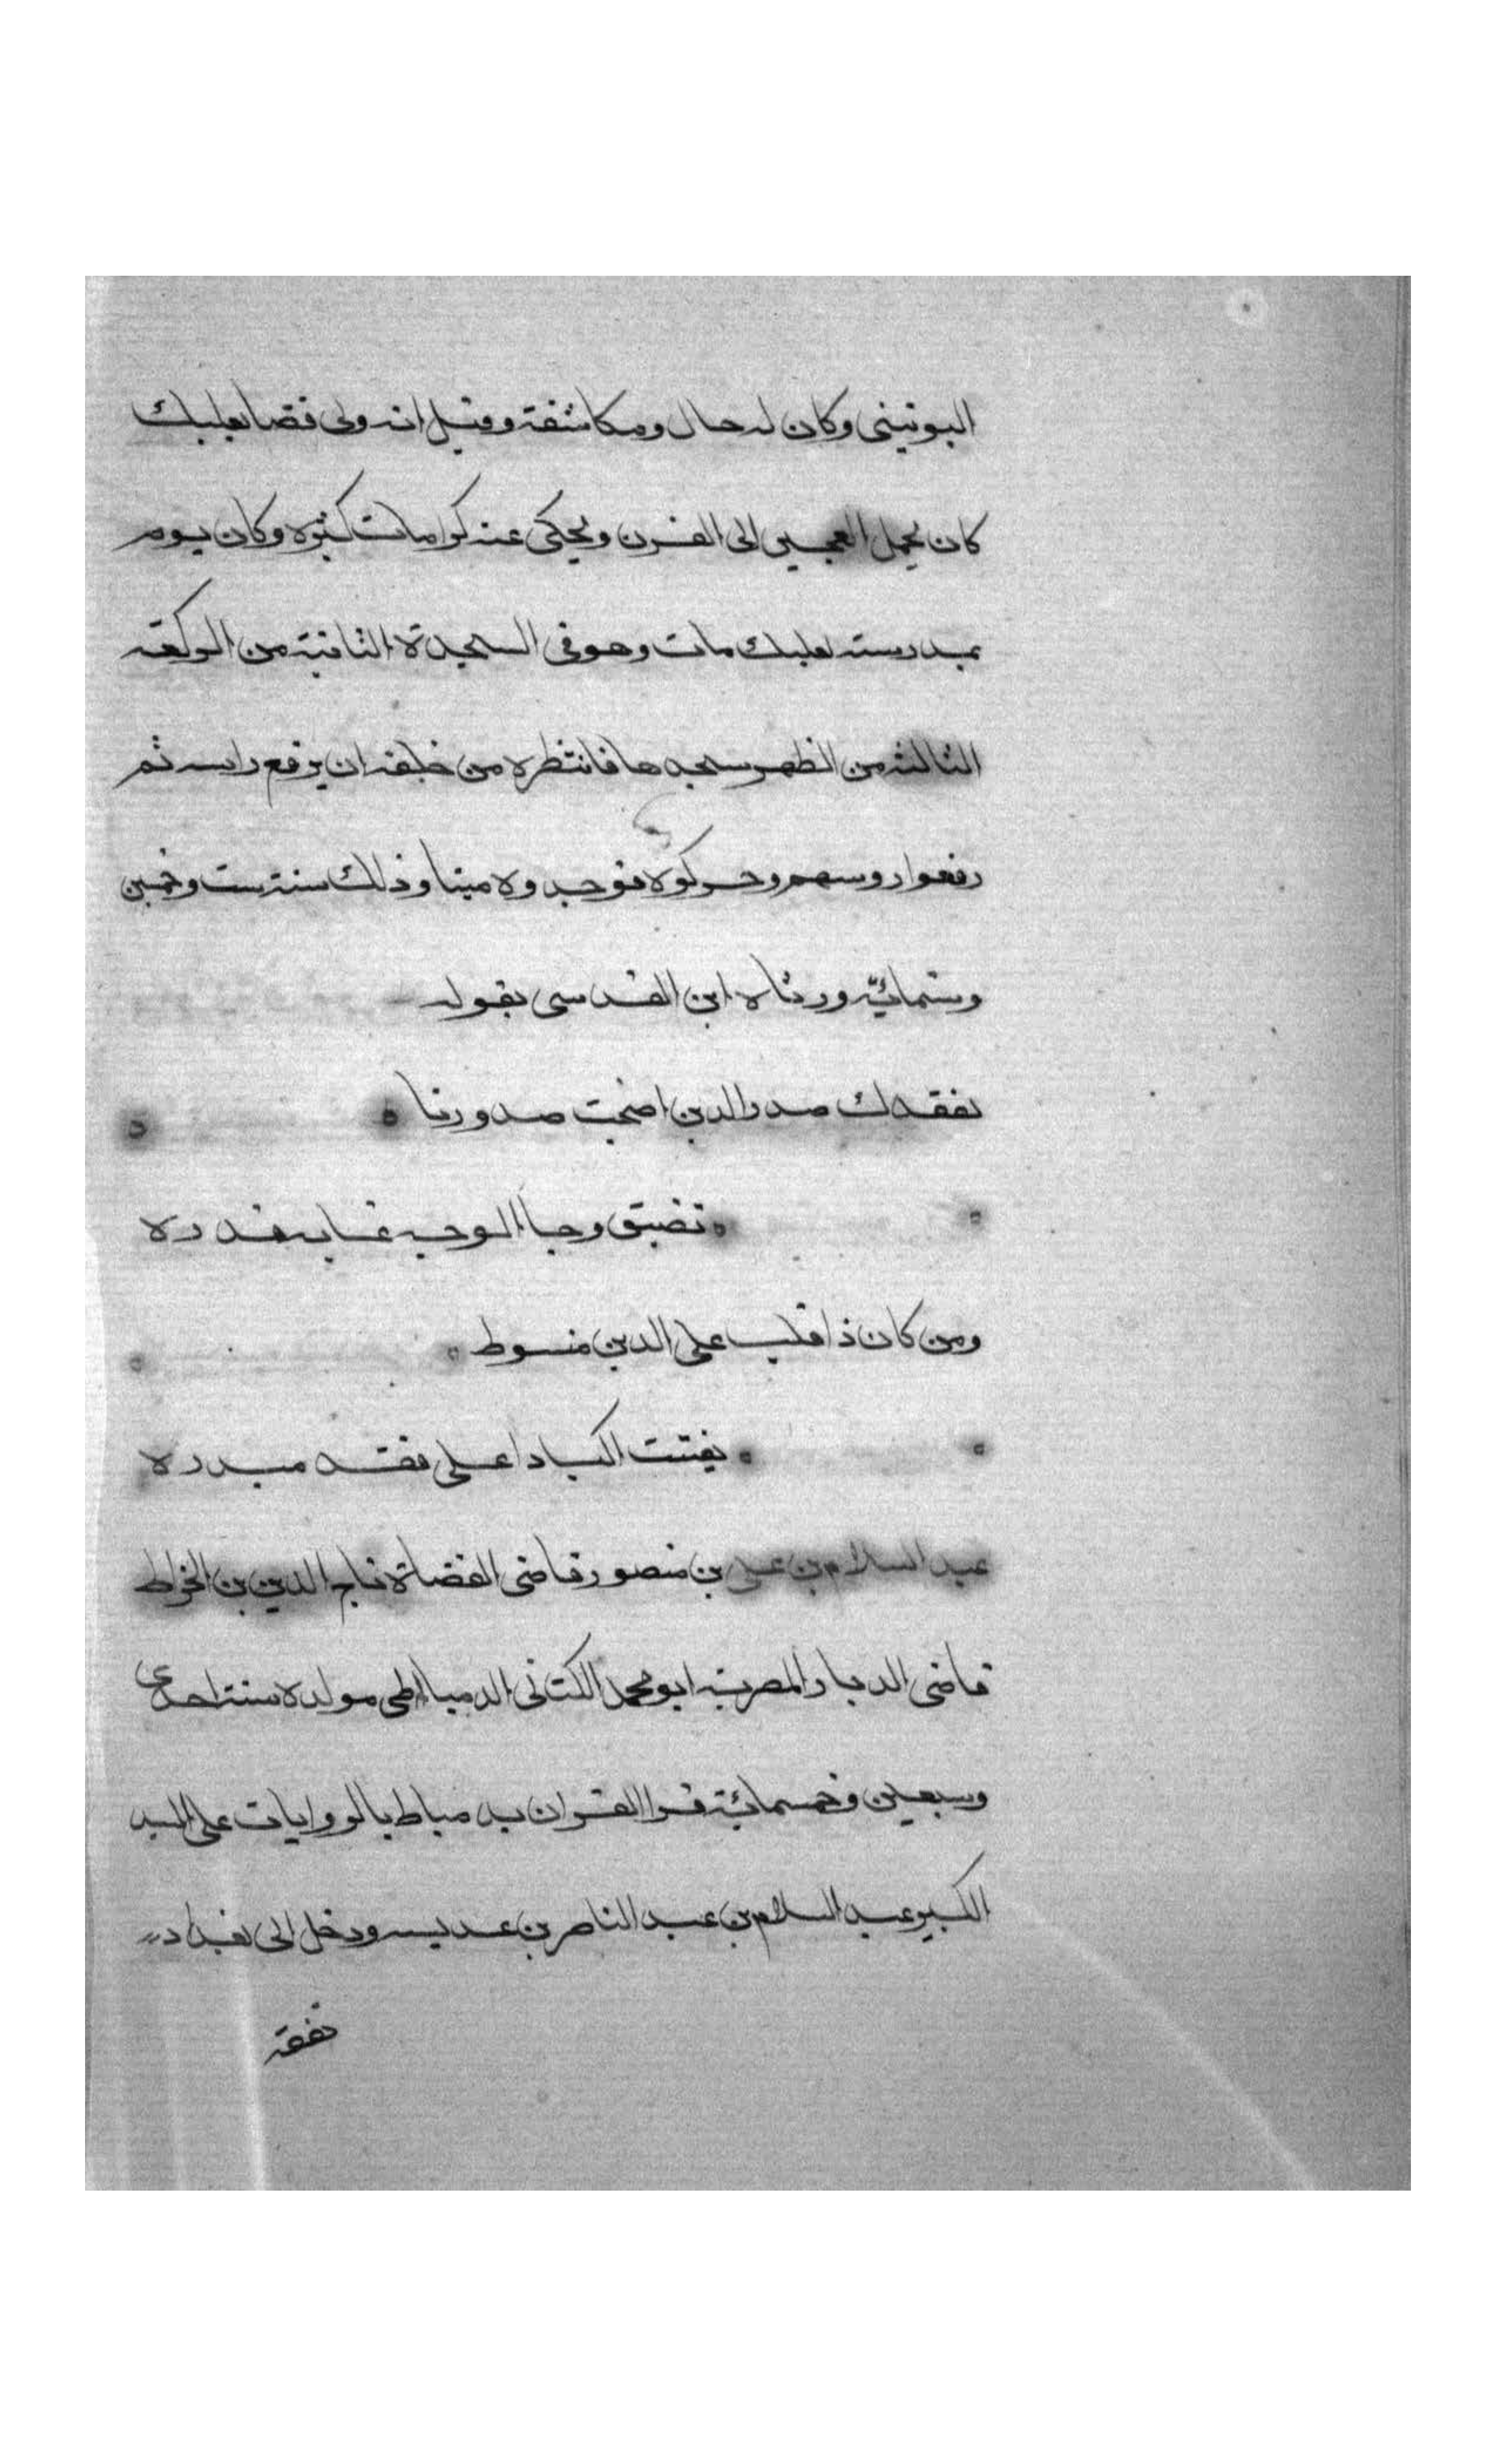 اليونيني وكان له حال ومكاشفة وقيل انه ولى قضا بعلبك
كان يحمل العجين الى الفرن ويحكى عنه كرامات كثيره وكان يوم
بمدرسته بعلبك مات وهو في السجدة الثانية من الركعة
الثالثه من الظهر سجدها فانتظره من خلفه ان يرفع راسه ثم
رفعوا روسهم وحركوه فوجدوه ميتا وذلك سنة ست وخمسين
وستمائة ورثاه ابن القدسى بقوله
لفقدك صدر الدين اضحت صدورنا
تضيق وجاا الوجد غاية قدره
ومن كان ذا قلب على الدين منسوط
يفتت اكبادا على فقد صدره
عبد السلام بن على بن منصور قاضى القضاة تاج الدين بن الخراط
قاضى الديار المصرية ابو محمد الكتانى الدمياطى مولده سنة احدى
وسبعين وخمسمائة قرا القران بدمياط بالروايات على السيد
الكبير عبد السلام بن عبد الناصر بن عديسه ودخل الى بغداد
تفقه